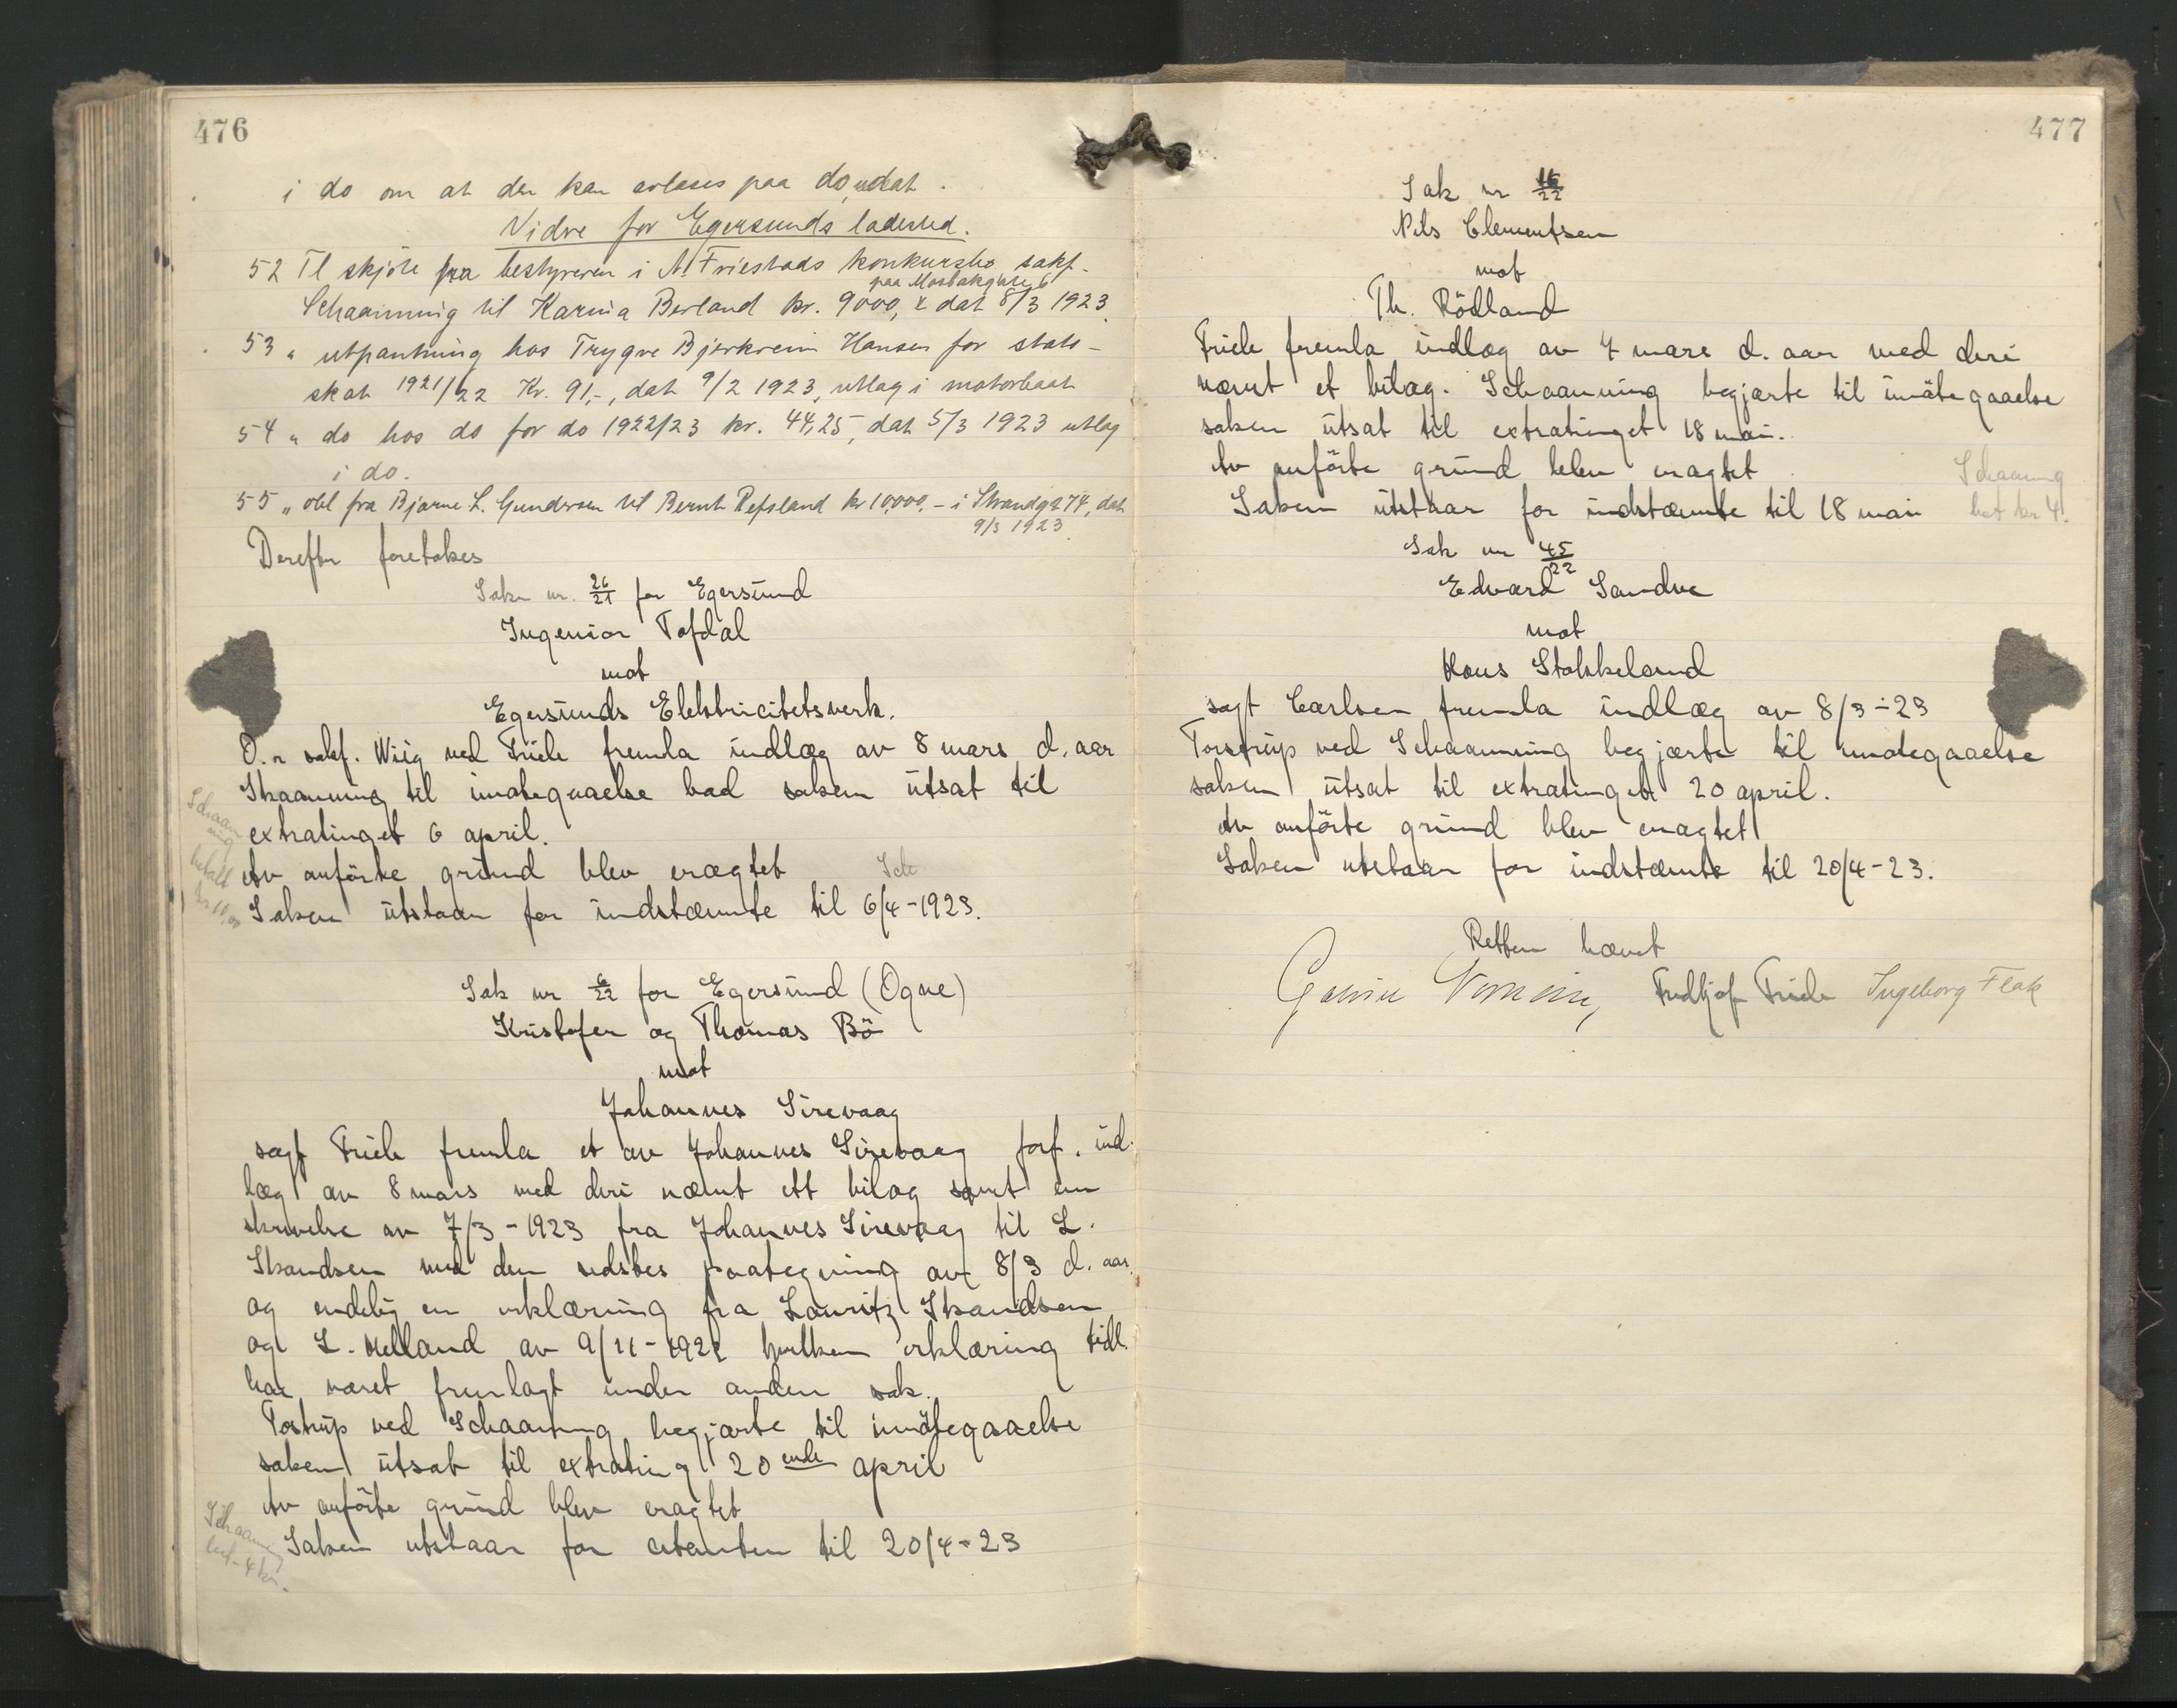 476
i do om at den kan avlæses paa do, udat.
Vidre for Egersunds ladested.
52 Tl skjöte fra bestyreren i A. Friestads konkursbo sakf.
paa Mosbakgate 6
Schaanning til Karina Berland kr. 9000, x dat 8/3 1923.
53 " utpantning hos Trygve Bjerkreim Hansen for stats-
skat 1921/22 Kr. 91,-, dat 9/2 1923, utlag i motorbaat
54 " do hos do for do 1922/23 kr. 44,25, dat 5/3 1923 utlag
i do.
55 " obl fra Bjarne L. Gundersen til Bernt Refsland kr 10,000.- i Strandgt 74, dat
9/3 1923.
Derefter foretokes
Sak nr. 26/21 for Egersund
Ingeniør Tofdal
mot
Egersunds Elektricitetsverk.
O.r sakf. Wiig ved Friele fremla indlæg av 8 mars d. aar
Skaanning til imøtegaaelse bad saken utsat til
extratinget 6 april.
Av anförte grund blev eragtet
Sch
Saken utstaar for indstævnte til 6/4-1923.
Schaanning
betalt
kr 10,00
Sak nr 6/22 for Egersund (Ogne)
Kristofer og Thomas Bö
mot
Johannes Sirevaag
sagf Friele fremla et av Johannes Sirevaag forf. ind-
læg av 8 mars med deri nævnt ett bilag samt en
skrivelse av 7/3-1923 fra Johannes Sirevaag til L.
Skandsen med den sidstes paategning av 8/3 d. aar.
og endelig en erklæring fra Lauritz Skandsen
og L. Helland av 9/11-1922 hvilken erklæring tidl.
har været fremlagt under anden sak.
Tostrup ved Schaanning begjærte til imötegaaelse
saken utsat til extrating 20 ende april
Av anförte grund blev eragtet
Saken utstaar for citanten til 20/4-23
Schaanning
bet - 4 kr.
477
Sak nr 16/22
Nils Clementsen
mot
Th. Rödland
Friele fremla indlæg av 7 mars d. aar med deri
nævnt et bilag. Schaanning begjærte til imötegaaelse
saken utsat til extratinget 18 mai.
Av anförte grund blev eragtet
Saken utstaar for indstævnte til 18 mai
Schaaning
bet kr 4.
Sak nr 45/22
Edvard Sandve
mot
Hans Stokkeland
sagf Carlsen fremla indlæg av 8/3-23
Torstrup ved Schaanning begjærte til imotegaaelse
saken utsat til extratinget 20 april.
Av anförte grund blev eragtet
Saken utstaar for indstævnte til 20/4-23.
Retten hævet
Fredtjof Friele Ingeborg Flak